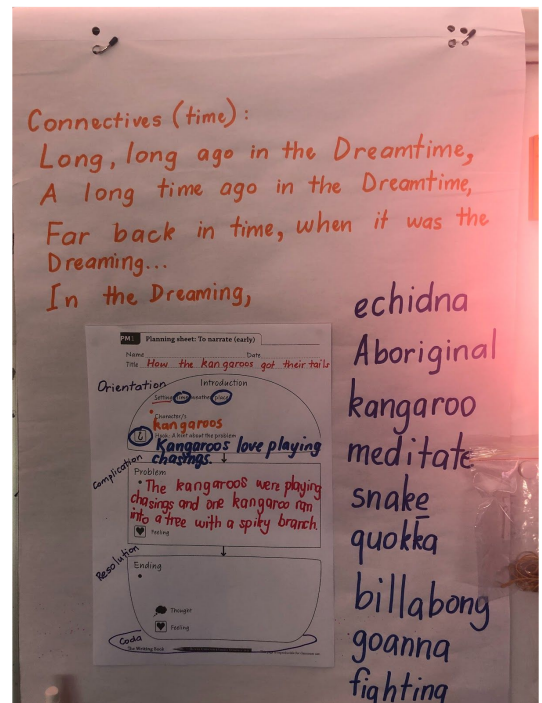 Connectives (time):
Long, long ago in the Dreamtime,
A long time ago in the Dreamtime,
Far back in time, when it was the
Dreaming...
In the Dreaming,
PM
Planning sheet: To narrate (early)
Name Date
Title How the kangaroos got their tails
Orientation
Introduction
Setting: time weather place
Character/s
kangaroos
Hook: A hint about the problem
Kangaroos love playing
chasings.
Complication
Problem
• The kangaroos were playing
chasings and one kangaroo ran
into a tree with a spiky branch.
Feeling
Resolution
Ending
Thought
Feeling
Coda
The Writing Book
echidna
Aboriginal
kangaroo
meditate
snake
quokka
billabong
goanna
fighting